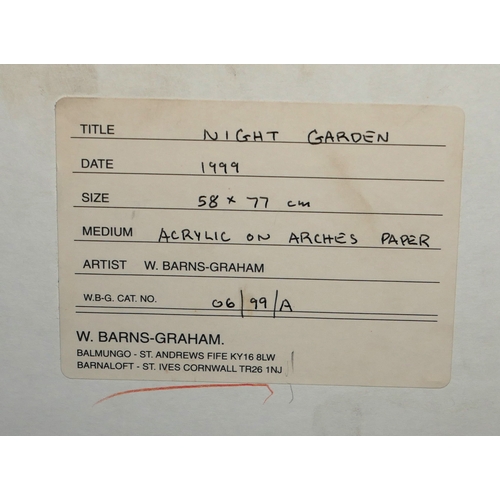 TITLE NIGHT GARDEN
DATE 1999
SIZE 58 x 77 cm
MEDIUM ACRYLIC ON ARCHES PAPER
ARTIST W. BARNS-GRAHAM
W.B-G. CAT. NO. 06/99/A
W. BARNS-GRAHAM.
BALMUNGO - ST. ANDREWS FIFE KY16 8LW
BARNALOFT - ST. IVES CORNWALL TR26 1NJ